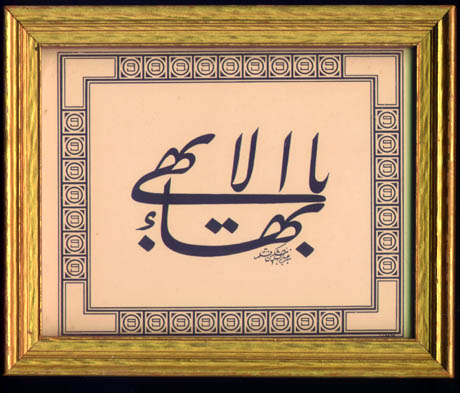 یا بهاء الابهی